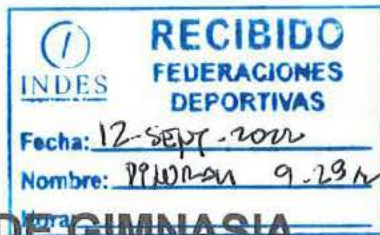 RECIBIDO
INDES
FEDERACIONES
DEPORTIVAS
Fecha: 12-SEPT-2022
Nombre: 9.29
Hora:
DE GIMNASIA